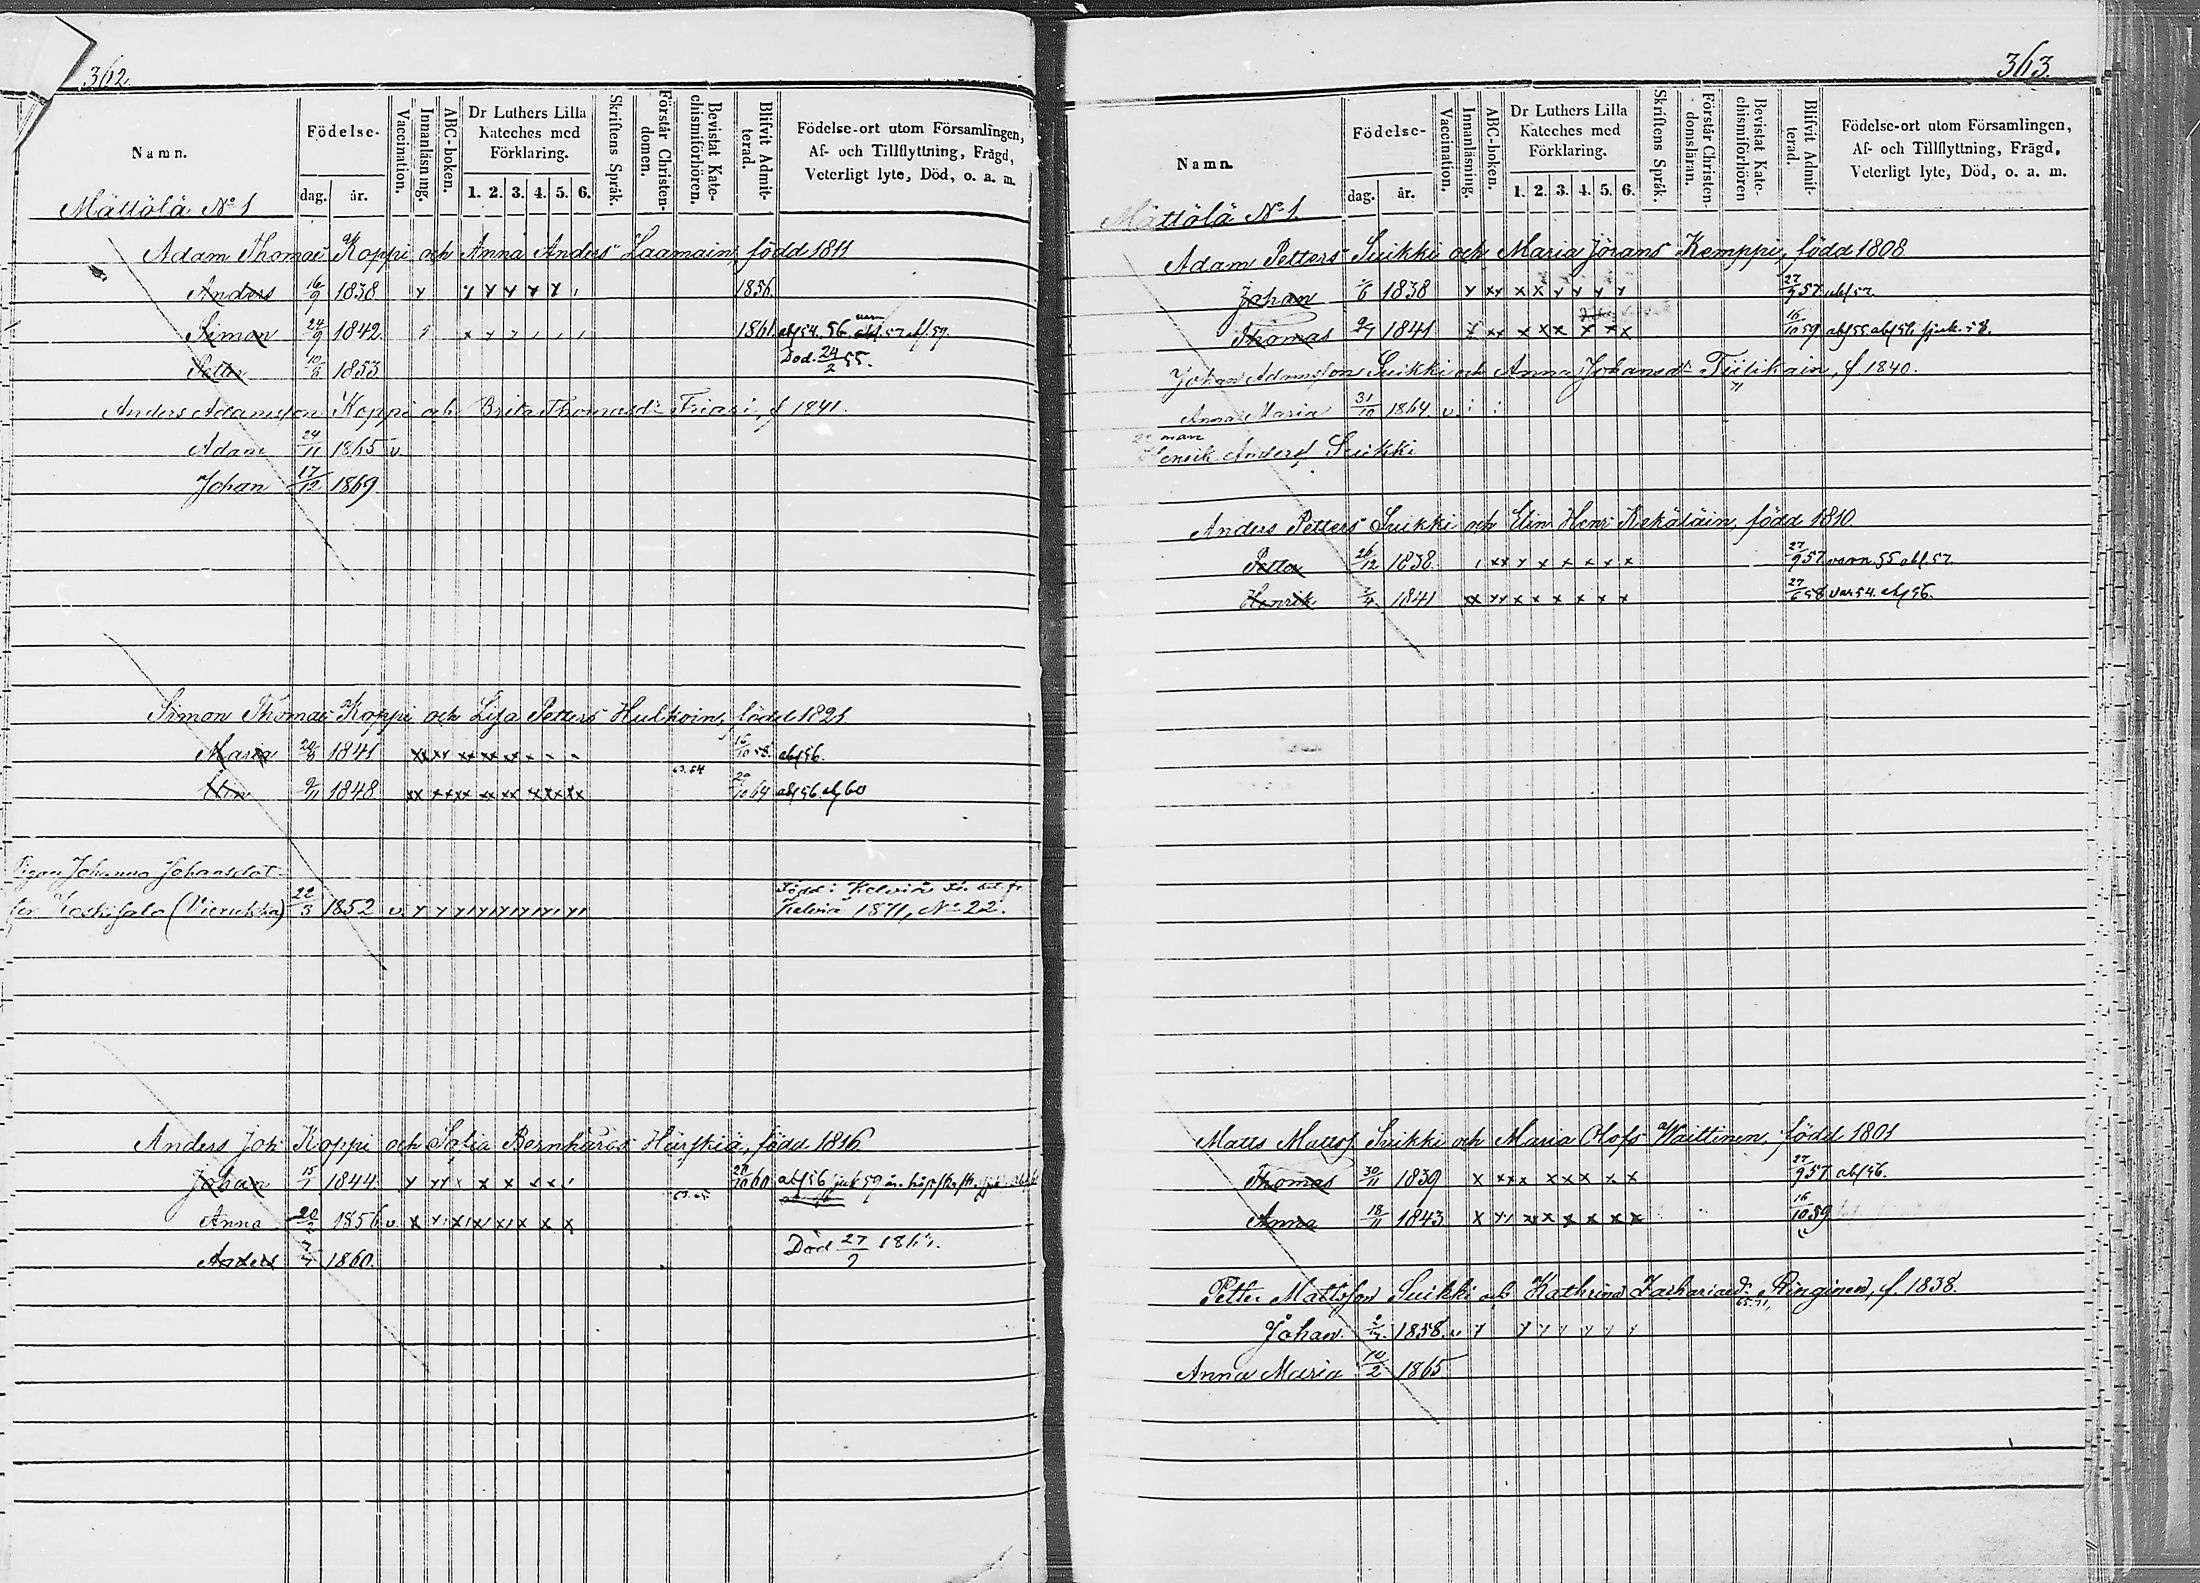 362.
Namn.
Födelse-
dag. år.
Vaccination.
Innanläsning.
ABC-boken.
Dr Luthers Lilla
Kateches med
Förklaring.
1. 2. 3. 4. 5. 6.
Skriftens Språk.
Förstår Christen-
domen.
Bevistat Kate-
chismiförhören.
Blifvit Admit-
terad.
Födelse-ort utom Församlingen,
Af- och Tillflyttning, Frägd,
Veterligt lyte, Död, o. a. m.
Mättölä No 1
Adam Thomas Koppi och Anna Anders Laamain, född 1811
Anders 16/9 1838 1856.
Simon 24/9 1842. 1861. abs 54. 56.
Petter 10/6 1853 Död. 24/2 55.
Anders Adamsson Koppi och Brita Thomasdr Friari, f 1841.
Adam 24/11 1865 v
Johan 17/12 1869
Simon Thomas Koppi och Lisa Petters Hulkoin, född 1821
Maria 1841 16/10 58. abs 56.
Elin 9/11 1848 63.64 abs 56.
Pigan Johanna Johansdot-
ter Koskisalo (Vierukka) 22/3 1852 v Född i Kelviå
Kelviå 1871, No 22.
Anders Joh Koppi och Sofia Bernhards Härskiä, född 1816.
Johan 15/1 1844 60 abs 56
Anna 20/2 1856 v
Anders 1860. Död 27/
363.
Namn.
Födelse-
dag. år.
Vaccination.
Innanläsning.
ABC-boken.
Dr Luthers Lilla
Kateches med
Förklaring.
1. 2. 3. 4. 5. 6.
Skriftens Språk.
Förstår Christen-
domsläran.
Bevistat Kate-
chismiförhören
Blifvit Admit-
terad.
Födelse-ort utom Församlingen,
Af- och Tillflyttning, Frägd,
Veterligt lyte, Död, o. a. m.
Mättölä No 1.
Adam Petters Suikki och Maria Jörans Kemppi, född 1808.
Johan 1838 27/9 57 abs 57.
Thomas 1841 16/10 59 abs 55. abs 56. sjuk 58.
Johan Adamsson Suikki och Anna Johansdr Tiilikain, f 1840.
Anna Maria 31/10 1864. v
man
Henrik Anders Suikki
Anders Petters Suikki och Elin Henr Kekäläin, född 1810
Petter 26/12 1838 27/9 57 varn 55 abs. 57.
Henrik 1841 27/6 58 var 54. abs 56.
Matts Matts Suikki och Maria Olofs Waittinen, född 1801
Thomas 30/11 1839 27/9 57 abs 56.
Anna 18/11 1843 16/10 59
Petter Mattsson Suikki och Kathrina Zachariaedr Ringinen, f. 1838.
65.71,
Johan 1858. v
Anna Maria 10/2 1865